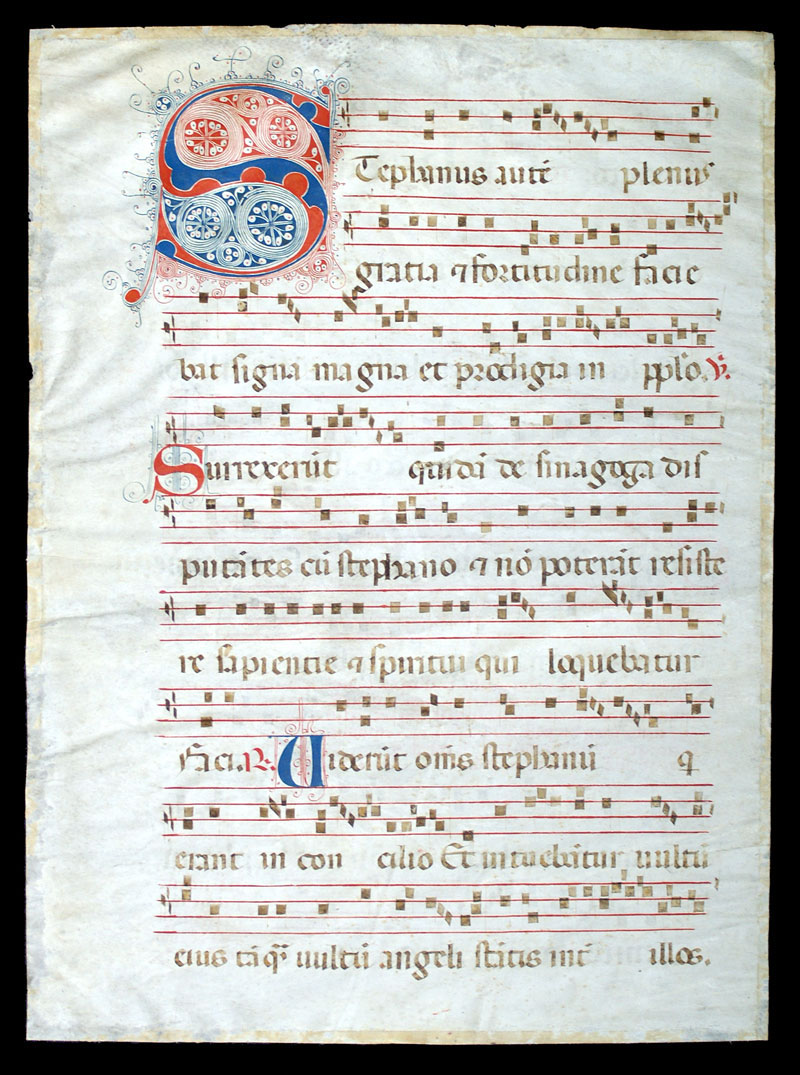 STephanus autē plenus
gratia ⁊ fortitudine facie
bat signa magna et prodigia in pplo. V.
Surrexerūt quidā de sinagoga dis
putātes cū stephano ⁊ nō poterāt resiste
re sapientie ⁊ spiritui qui loquebatur
faci. R. Viderūt oms stephanū q
erant in con cilio Et intuebātur uultū
eius tāq̄ uultū angeli stātis int̄ illos.